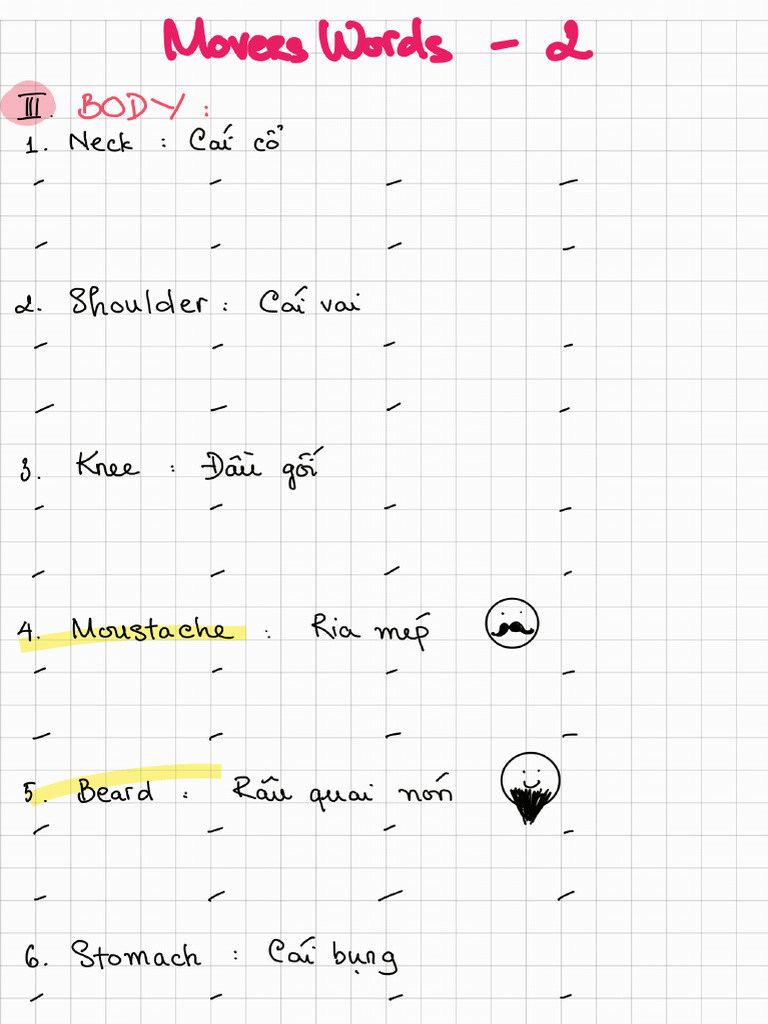 Movers Words - 2
III. BODY :
1. Neck : Cái cổ
- - - -
- - - -
2. Shoulder : Cái vai
- - - -
- - - -
3. Knee : Đầu gối
- - - -
- - - -
4. Moustache : Ria mép
- - - -
- - - -
5. Beard : Râu quai nón
- - - -
- - - -
6. Stomach : Cái bụng
- - - -